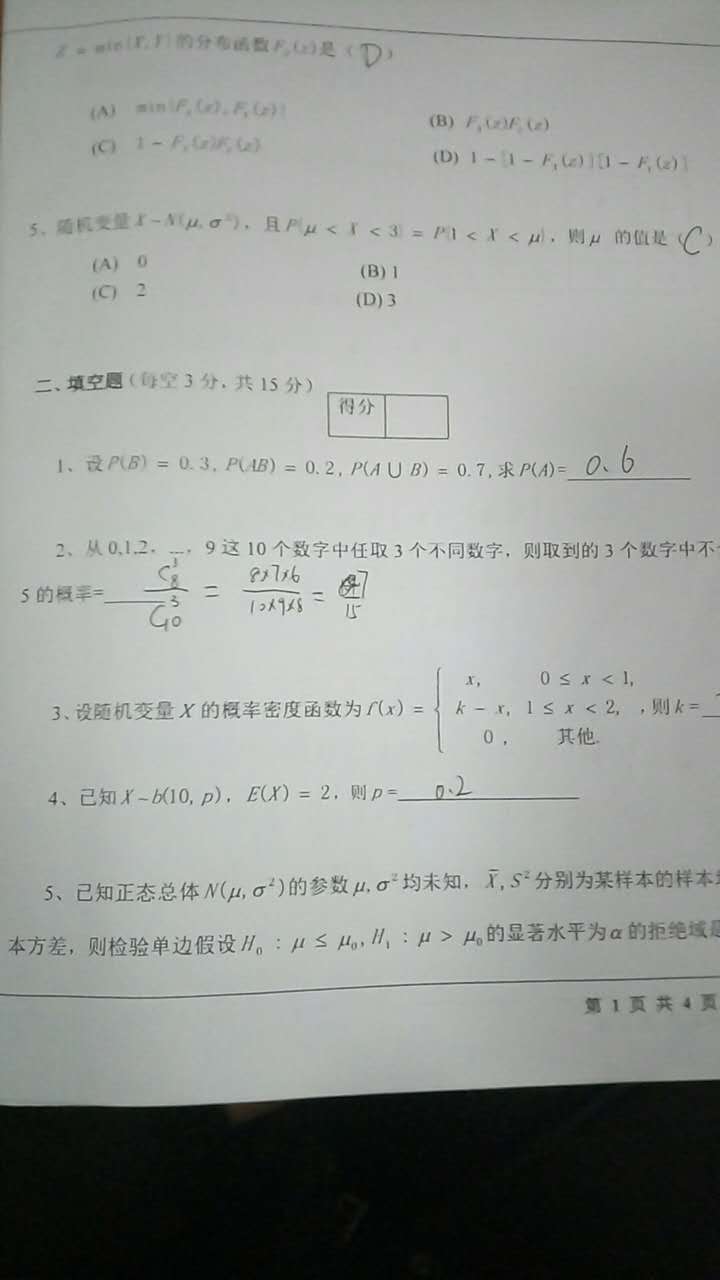 Z = min{X,Y} 的分布函数F_z(z)是 ( D )
(A) min{F_x(z), F_y(z)}
(B) F_x(z)F_y(z)
(C) 1 - F_x(z)F_y(z)
(D) 1 - [1 - F_x(z)][1 - F_y(z)]
5、随机变量X~N(μ, σ²), 且P{μ < X < 3} = P{1 < X < μ}, 则μ 的值是 ( C )
(A) 0
(B) 1
(C) 2
(D) 3
二、填空题(每空3分, 共15分)
得分
1、设P(B) = 0.3, P(AB) = 0.2, P(A ∪ B) = 0.7, 求P(A)= 0.6
2、从0,1,2, …, 9这10个数字中任取3个不同数字, 则取到的3个数字中不
5的概率= C₈³/C₁₀³ = 8×7×6/10×9×8 = 7/15
3、设随机变量X的概率密度函数为f(x) = { x, 0 ≤ x < 1,
k - x, 1 ≤ x < 2, , 则k=
0, 其他.
4、已知X~b(10, p), E(X) = 2, 则p= 0.2
5、已知正态总体N(μ, σ²)的参数μ, σ²均未知, X̄, S²分别为某样本的样本
本方差, 则检验单边假设H₀ : μ ≤ μ₀, H₁ : μ > μ₀的显著水平为α的拒绝域是
第 1 页 共 4 页